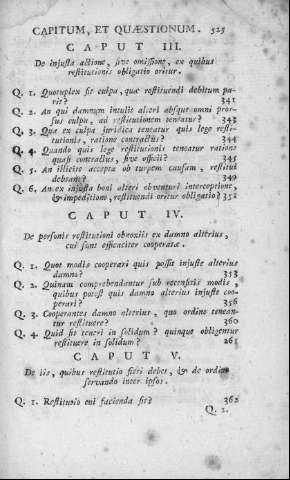 CAPITUM, ET QUÆSTIONUM. 525
CAPUT III.
De injusta actione, sive omissione, ex quibus
restitutionis obligatio oritur.
Q. 1. Quotuplex sit culpa, quæ restituendi debitum pa-
rit? 341
Q. 2. An qui damnum intulit alteri absque omni pror-
sus culpa, ad restitutionem teneatur? 343
Q. 3. Qua ex culpa juridica teneatur quis lege resti-
tutionis, ratione contractus? 344
Q. 4. Quando quis lege restitutionis teneatur ratione
quasi contractus, sive officii? 345
Q. 5. An illicite accepta ob turpem causam, restitui
debeant? 349
Q. 6. An ex injusta boni alteri obventuri interceptione,
& impeditione, restituendi oritur obligatio? 351
CAPUT IV.
De personis restitutioni obnoxiis ex damno alterius,
cui sunt efficaciter cooperatæ.
Q. 1. Quot modis cooperari quis possit injuste alterius
damno? 353
Q. 2. Quinam comprehendantur sub recensitis modis,
quibus potest quis damno alterius injuste coo-
perari? 356
Q. 3. Cooperantes damno alterius, quo ordine tenean-
tur restituere? 360
Q. 4. Quid sit teneri in solidum? quinque obligentur
restituere in solidum? 261
CAPUT V.
De iis, quibus restitutio fieri debet, & de ordine
servando inter ipsos.
Q. 1. Restitutio cui facienda sit? 362
Q. 2.